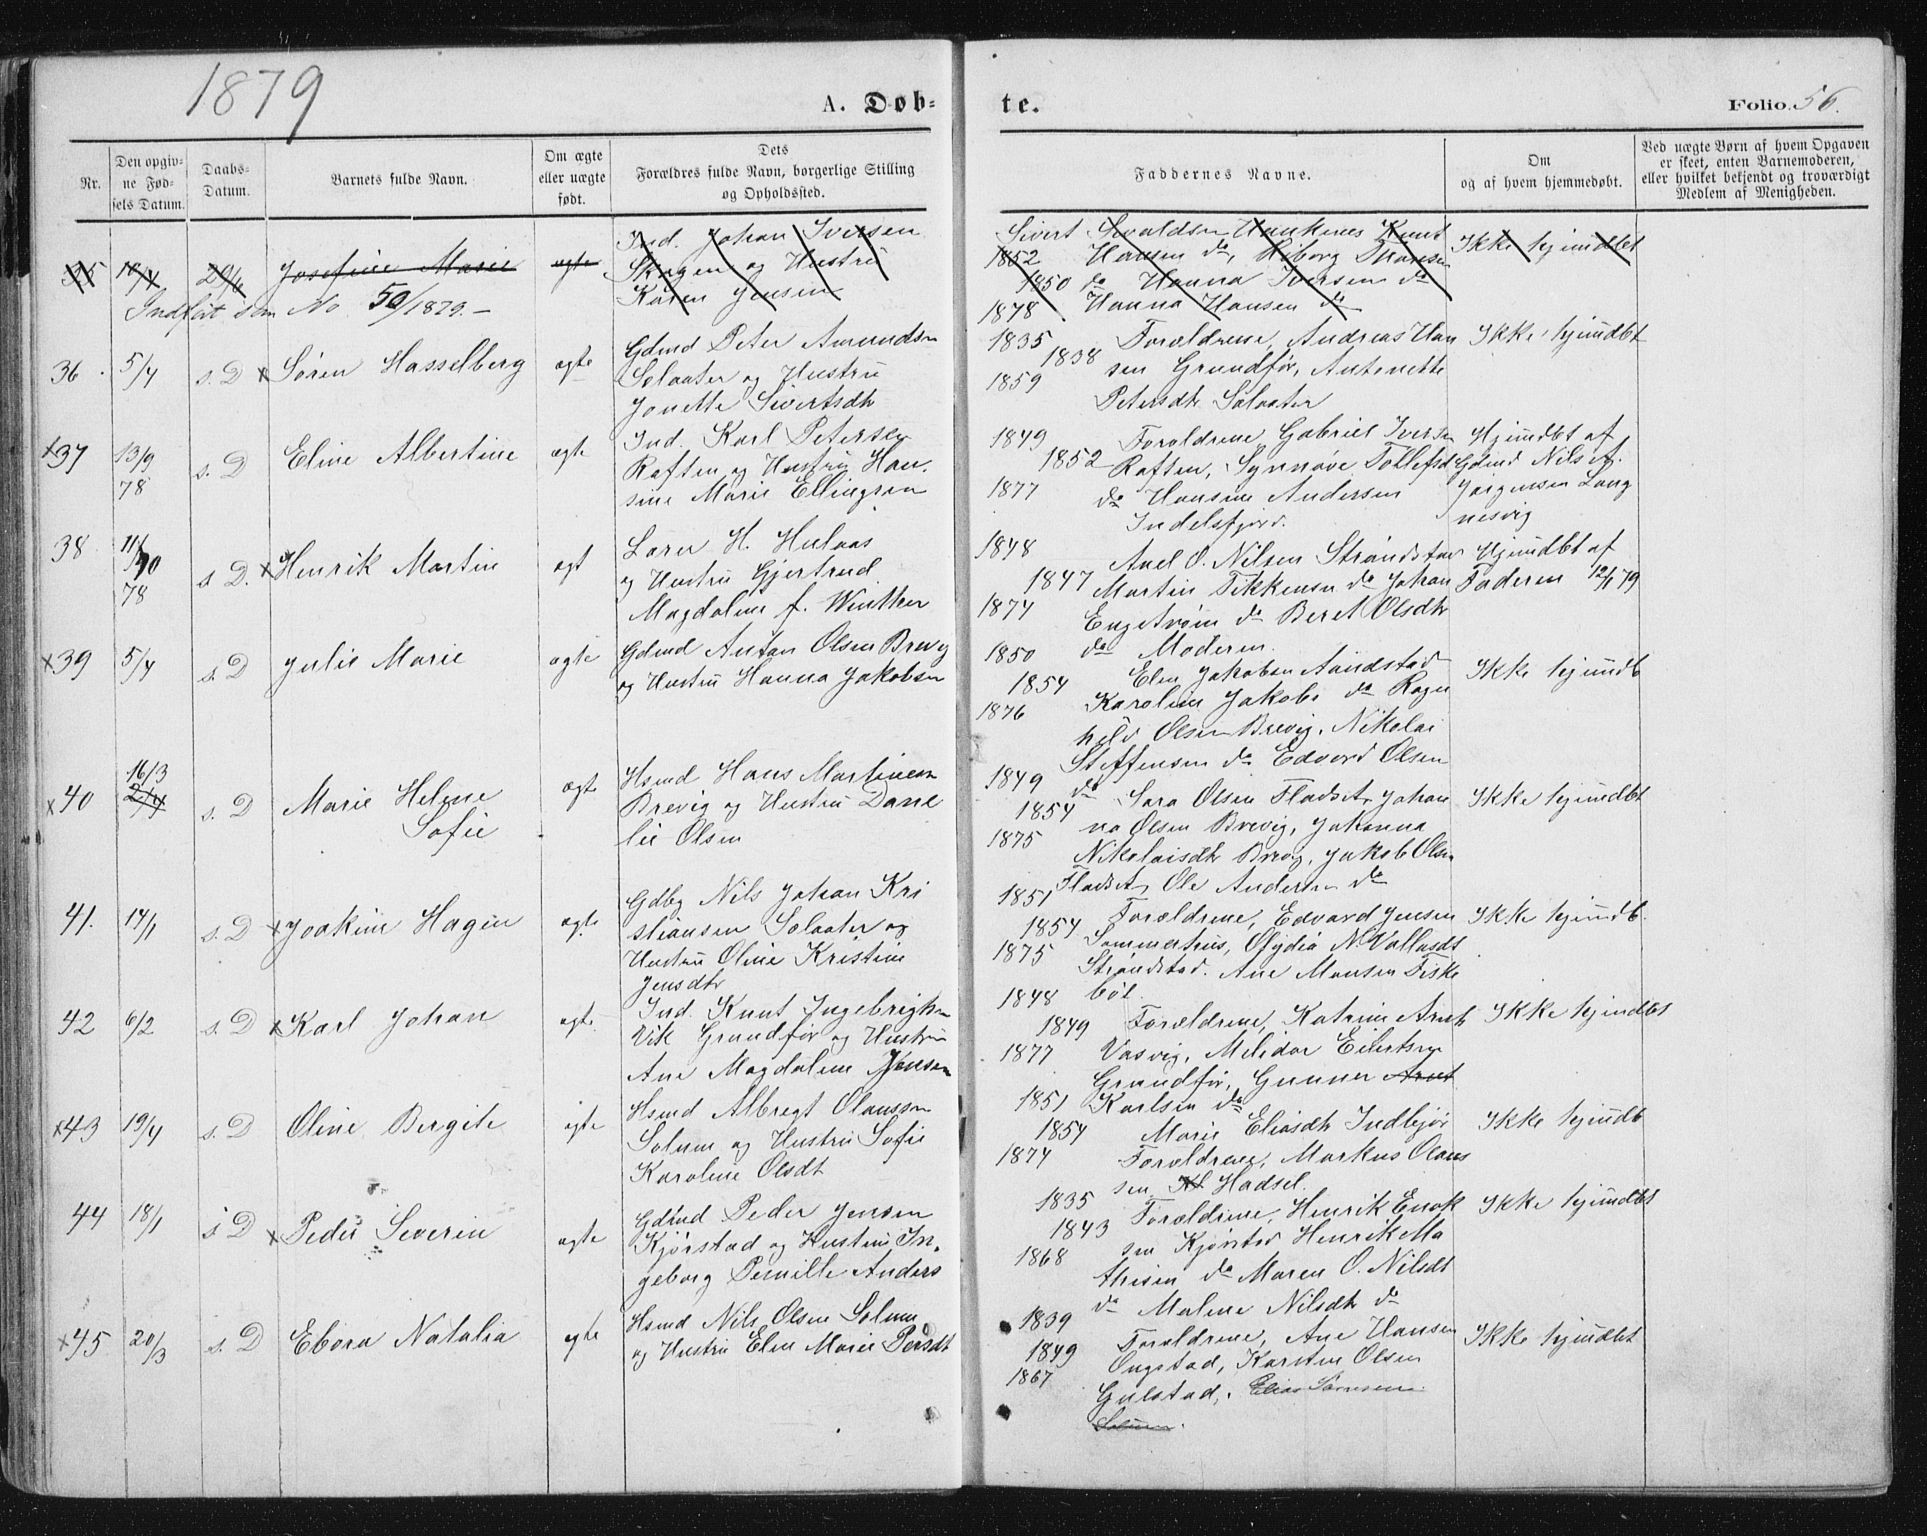 1879
A. Døb-
te.
Folio. 56.
Nr.
Den opgiv-
ne Fød-
sels Datum.
Daabs-
Datum.
Barnets fulde Navn.
Om ægte
eller uægte
født.
Dets
Forældres fulde Navn, borgerlige Stilling
og Opholdssted.
Faddernes Navne.
Om
og af hvem hjemmedøbt.
Ved uægte Børn af hvem Opgaven
er skeet, enten Barnemoderen,
eller hvilket bekjendt og troværdigt
Medlem af Menigheden.
35 Josefine Marie ægte
Ind. Johan Iversen
Skogen og Hustru
Karen Jensen
Indført som No 50/1879.-
Sivert Sivaldsen Haukenes Knut
1852 Hansen do,
1850 do Hanna Iversen do
1878 Hanna Hansen do
Ikke hjemdbt
36. 5/4 s. D x Søren Hasselberg ægte
Gdmd Peter Amundsn
Solaater og Hustru
Jonette Sivertsdtr
1835 Forældrene, Andreas Han
1838 sen Grundfør, Antonette
1859 Petersdtr Solaater
Ikke hjemdbt
x37 13/9 78 s. D Eline Albertine ægte
Ind. Karl Petersen
Raften og Hustru Han-
sine Marie Ellingsen
1849 Forældrene Gabriel Iversn
1852 Raften, Synnøve Tollefsd
1877 do Hansine Andersen
Indelsfjord.
Hjemdbt af
Gdmd Nils A.
Jørgensen Lang
nesvig
38 11/10 78 s. D. x Henrik Martin ægt
Lærer H. Hulaas
og Hustru Gjertrud
Magdalene f. Winther
1848 Axel O. Nilsen Strandstad
1847 Martin Tikkensen do Johan
1874 Engstrøm do Beret Olsdtr
do Moderen.
Hjemdbt af
Faderen 12/1 79
x39 5/4 s. D Julie Marie ægte
Gdmd Anton Olsen Brevig
og Hustru Hanna Jakobsn
1850
1854 Elen Jakobsen Aandstad
1876 Karoline Jakobs do Ragn
hild Olsen Brevig, Nikolai
Steffensen do Edvard Olsen
do
Ikke hjemdb
x40 16/3 2/4 s. D Marie Helene
Sofie
ægt
Hsmd Hans Martinsen
Brevig og Hustru Dane
lie Olsen
1849
1854 Sara Olsen Fladset, Johan
1875 na Olsen Brevig, Johanna
Nikolaisdtr Brevig, Jakob Olsn
Fladset, Ole Andersen do
Ikke hjemdbt
41. 14/1 s. D x Joakim Hagen ægte
Gdbg Nils Johan Kri
stiansen Solaater og
Hustru Oline Kristine
Jensdtr
1851
1854 Forældrene, Edvard Jensen
1875 Sommerhus, Olydia N. Vallasdt
Strandstad. Ane Monsen Fiske
bøl.
Ikke hjemdb.
42 6/2 s. D x Karl Johan ægte
Ind. Knut Ingebrigtsn
Vik Grundfør og Hustru
Ane Magdalene Jensen
1848
1849 Forældrene, Katrine Arnt
1877 Vasvig, Melidor Eilertsen
Grundfør, Gunner Arnt
Karlsen do
Ikke hjemdbt
x43 19/4 s. D Oline Bergite ægte
Hsmd Albregt Olaussn
Solum og Hustru Sofie
Karoline Olsdt
1851
1854 Marie Eliasdtr Indlejør
1874 Forældrene, Markus Olaus
sen Hadsel.
Ikke hjemdb
44 18/1 s D x Peder Severin ægte
Gdmd Peder Jensen
Kjørstad og Hustru In-
geborg Pernille Anders
1835 Forældrene, Henrik Enok
1843 sen Kjørstad Henrik Ma
1868 thisen do Maren O. Nilsdt
do Malene Nilsdtr do
Ikke hjemdbt
x45 20/3 s. D Ebora Natalia ægte
Hsmd Nils Olsen Solum
og Hustru Elen Marie Persdt
1839
1849 Forældrene, Ane Hansen
1867 Ongstad, Karsten Olsen
Gulstad, Elias Sørensen
Solum.
Ikke hjemdbt